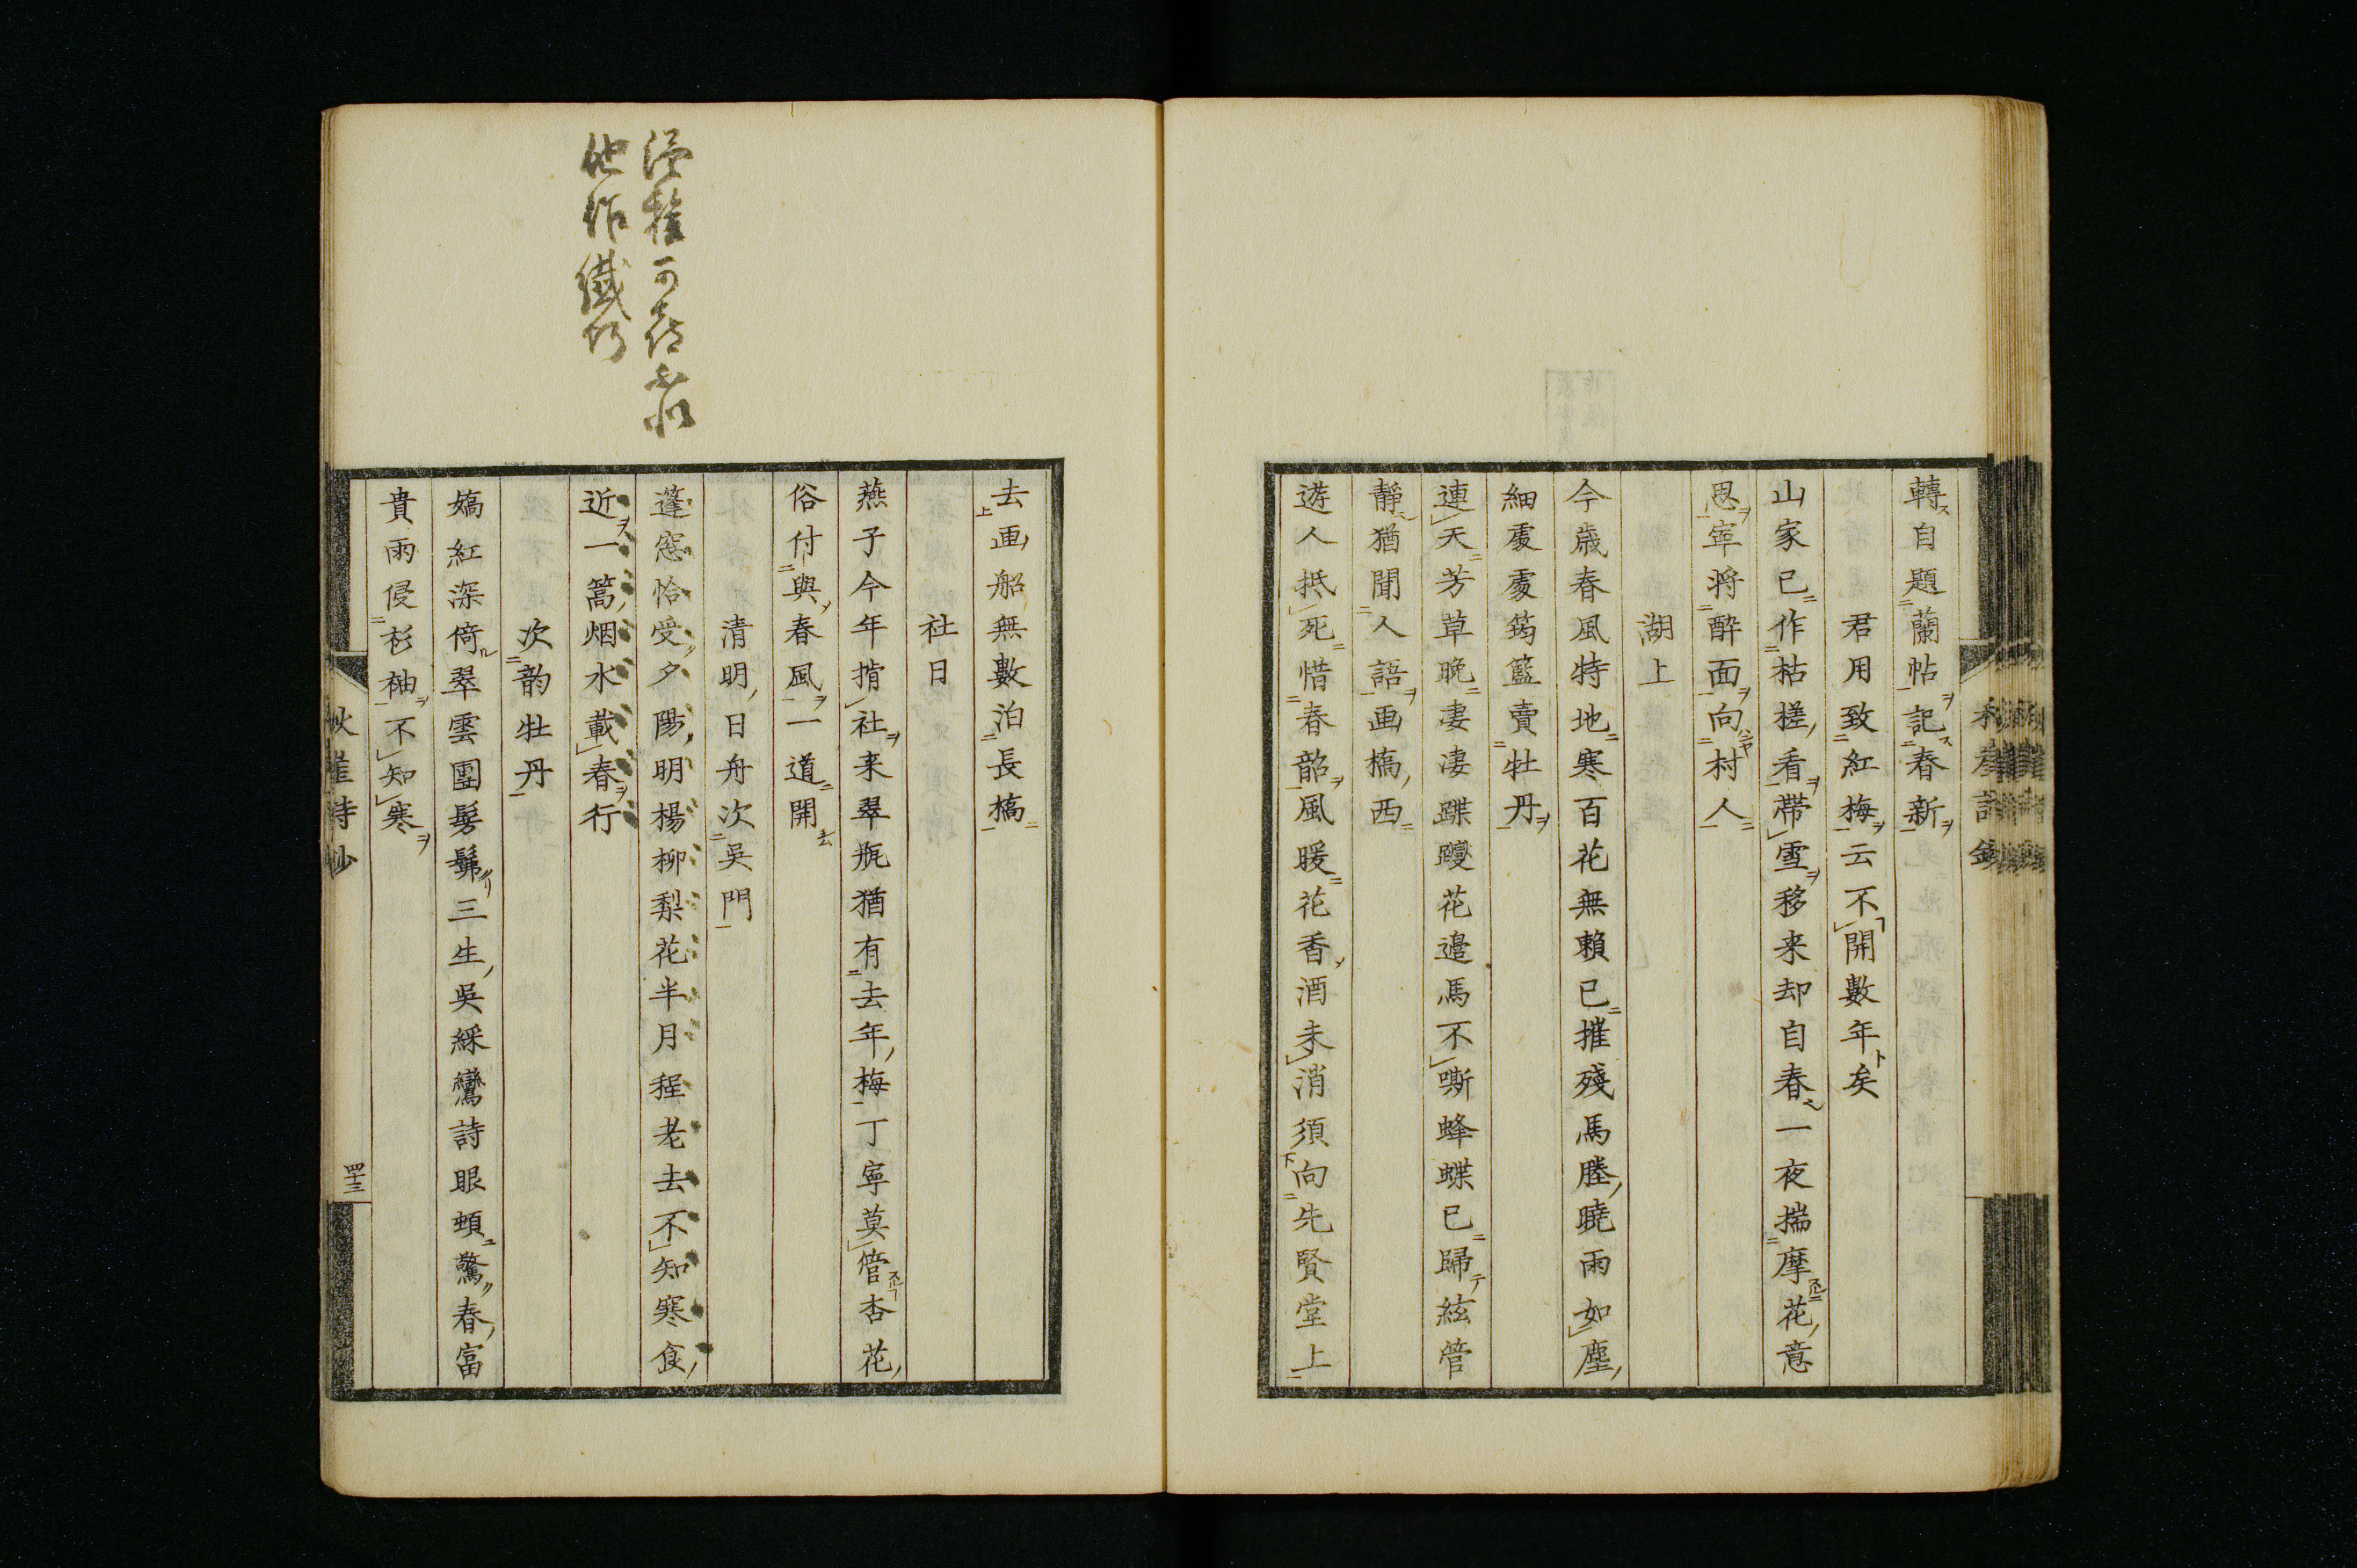 轉自題蘭帖記春新
君用致紅梅云不開數年矣
山家已作枯槎看帶雪移来却自春一夜揣摩花意
思宰将醉面向村人
湖上
今歳春風特地寒百花無賴已摧殘馬塍曉雨如塵
細處處筠籃賣牡丹
連天芳草晩凄凄蹀躞花邉馬不嘶蜂蝶已歸絃管
靜猶聞人語画橋西
遊人抵死惜春韶風暖花香酒未消須向先賢堂上
去画船無數泊長橋
社日
燕子今年揹社来翠瓶猶有去年梅丁寧莫管杏花
俗付與春風一道開
清明日舟次吳門
蓬窓恰受夕陽明楊柳梨花半月程老去不知寒食
近一篙烟水載春行
次韵牡丹
嬌紅深倚翠雲團髣髴三生吳綵鸞詩眼頓驚春富
貴雨侵衫袖不知寒
四十三
他作纎巧